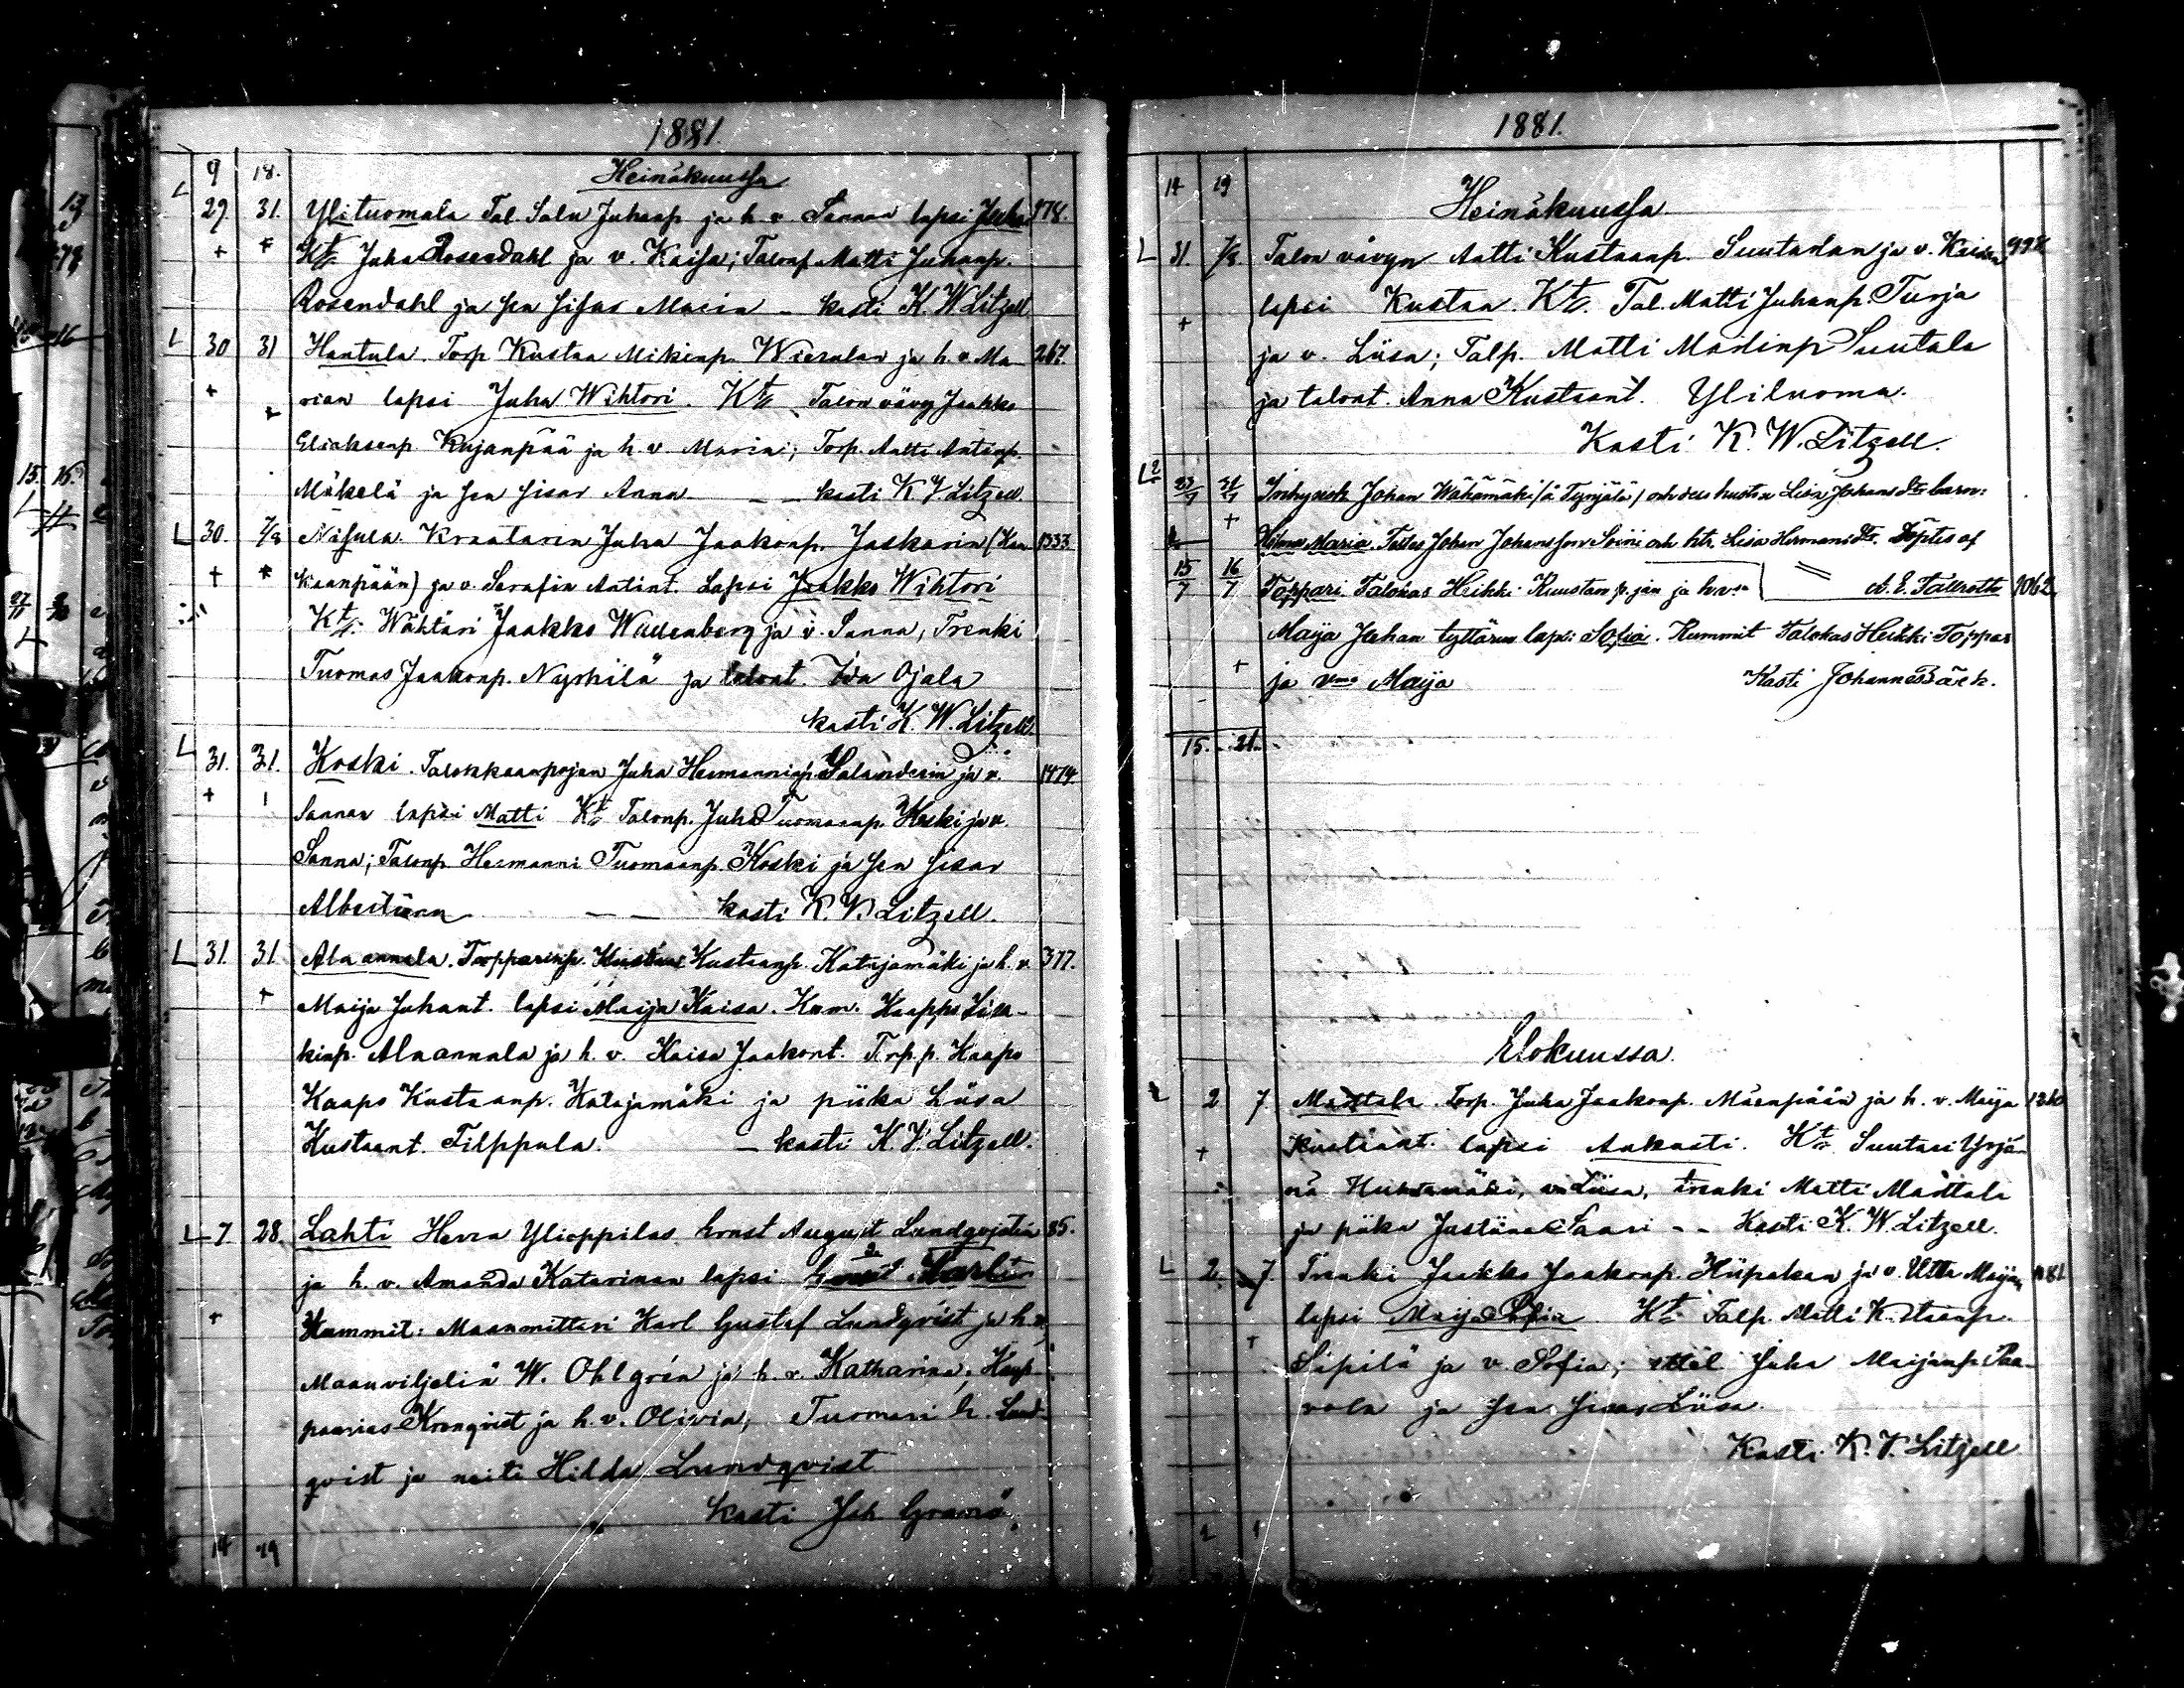 1881.
9 18. Heinäkuussa
29. 31. Ylituomala Tal. Salu Juhanp. ja h. v. Sannan lapsi Juha 978.
Kt. Juha Rosendahl ja v. Kaisa; Talonp. Matti Juhanp.
Rosendahl ja sen sisar Maria – kasti K. W. Litzell
L 30 31 Hantula. Torp. Kustaa Mikinp. Wierulan ja h. v. Ma- 267.
rian lapsi Juha Wihtori. Kt. Talon vävy Jaakko
Eliaksenp. Kujanpää ja h. v. Maria; Torp. Antti Antinp.
Mäkelä ja sen sisar Anna – – kasti K V Litzell.
L 30. 7/8 Näsula Kraatarin Juha Jaakonp. Jaskarin (Kan- 1333
kaanpään) ja v. Serafia Antint. Lapsi Jaakko Wihtori
Kt. Wahtäri Jaakko Wallenberg ja v. Sanna, Trenki
Tuomas Jaakonp. Nyrhilä ja talont. Ida Ojala
kasti K. W. Litzell.
L 31. 31. Koski. Talokkaanpojan Juha Hermanninp. Salanderin ja v. 1474
Sannan lapsi Matti Kt. Talonp. Juha Tuomaanp. Koski ja v.
Sanna; Talonp. Hermanni Tuomaanp. Koski ja sen sisar
Albertiina – – kasti K. V. Litzell.
L 31. 31. Ala annala. Kustaanp. Katajamäki ja h. v. 377.
Maija Juhant. lapsi Maija Kaisa. Kum. Kaappo
kinp. Alaannala ja h. v. Kaisa Jaakont. Trp.p. Kaapo
Kaapo Kustaanp. Katajamäki ja piika Liisa
Kustaant. Filppula. – kasti K. V. Litzell.
L 7 28. Lahti Herra Ylioppilas Ernst August Lundqvistin 85.
ja h. v. Amanda Katarinan lapsi
Kummit: Maanmittari Karl Gustaf Lundqvist ja h. v.,
Maanviljeliä W. Ohlgrén ja h. v. Katharina, Kaup-
paanias Kronqvist ja h. v. Olivia, Tuomari h. Lund-
qvist ja neiti Hilda Lundqvist
kasti Joh Granö.
14 19
1881.
14 19
Heinäkuussa.
L 31. 7/8. Talon vävyn Antti Kustaanp. Suutalan ja v. Kaisan 998
lapsi Kustaa. Kt. Tal. Matti Juhanp. Turja
ja v. Liisa; Talp. Matti Matinp. Suutala
ja talont. Anna Kustaant. Yliluoma.
Kasti K. W. Litzell.
23/7 31/7 Inhysick Johan Wähämäki (å Tynjälä) och dess hustru Lisa Johans dr. barn:
Hilma Maria. Testes Johan Johansson Soini och htr. Lisa Hermans dr. Döptes af
A. E. Tallroth
15/7 16/7 Toppari Talokas Heikki Kuustan p. jan ja h v:n 1062
Maija Juhan tyttären lapsi Sofia. Kummit Talokas Heikki Toppar
ja vmo Maija Kasti Johannes Bäck.
15. 21.
Elokuussa.
2 7. Mattala. Torp. Juha Jaakonp. Mäenpään ja h. v. Maija 1310
Kustaant. lapsi Aukusti. Kt. Suutari Yrjä-
nä Huhtamäki, v. Liisa, trenki Matti Mattala
ja piika Justiina Saari – – Kasti K. W. Litzell.
L 2. 7 Trenki Jaakko Jaakonp. Hiipakan ja v. Ulla Maijan 1181
lapsi Maija Sofia Kt. Talp. Matti Kustaanp.
Sipilä ja v. Sofia; ittel Juha Maijanp. Paa-
vola ja sen sisar Liisa.
Kasti K. V. Litzell
2 1